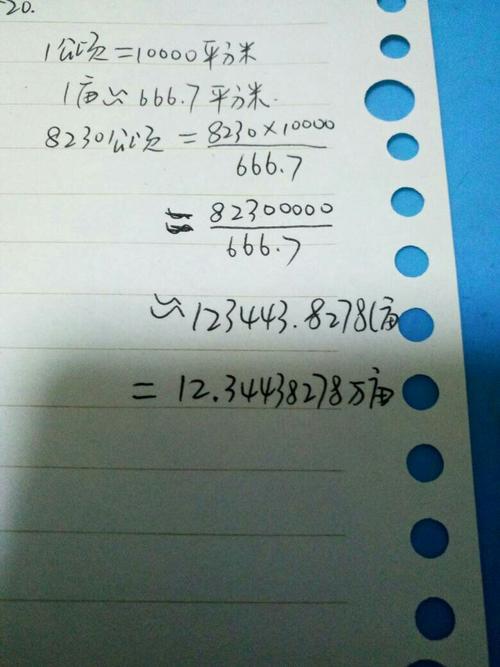 -20.
1公顷=10000平方米
1亩≈666.7平方米.
8230公顷 = 8230×10000
666.7
= 82300000
666.7
≈123443.8278(亩
= 12.34438278万亩